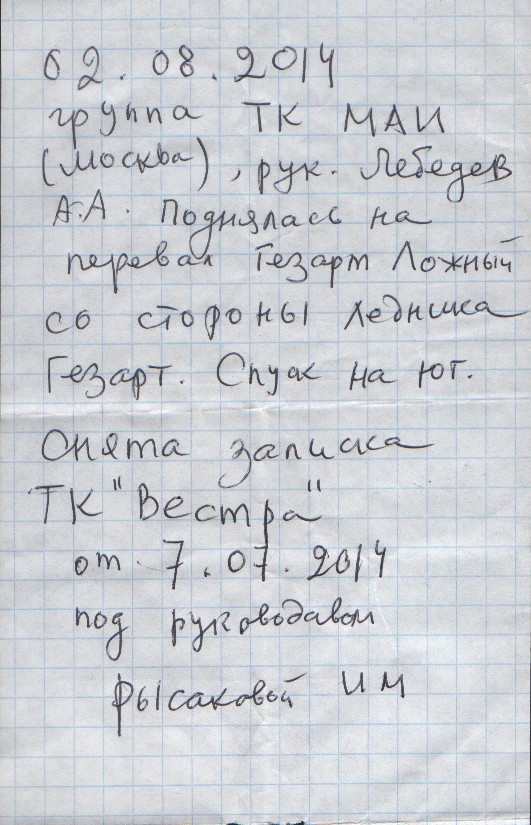 02.08.2014
группа ТК МАИ
(Москва), рук. Лебедев
А.А. Поднялась на
перевал Гезарт Ложный
со стороны ледника
Гезарт. Спуск на юг.
Снята записка
ТК "Вестра"
от 7.07.2014
под руководством
Рысаковой И М